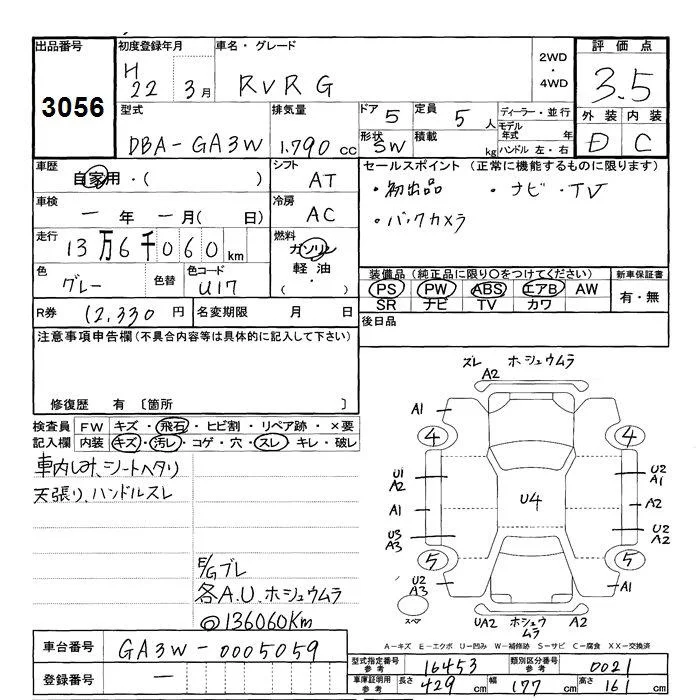 出品番号 初度登録年月 車名・グレード 2WD ・ 4WD 評価点
3056 H 22 3月 RVR G 3.5
型式 排気量 ドア 5 定員 5人 ディーラー・並行 外装 内装
DBA-GA3W 1.790 cc 形状 SW 積載 kg モデル年式 年 ハンドル 左・右 D C
車歴 自家用・( ) シフト AT セールスポイント(正常に機能するものに限ります)
・初出品 ・ナビ・TV
車検 一年 一月( 日) 冷房 AC ・バックカメラ
走行 13万6千060km 燃料 ガソリン 軽油 ・ ( )
色 グレー 色替 色コード U17 装備品(純正品に限り○をつけてください) 新車保証書
PS PW ABS エアB AW 有・無
SR ナビ TV カワ
R券 12,330円 名変期限 月 日 後日品
注意事項申告欄(不具合内容等は具体的に記入して下さい)
修復歴 有〔箇所 〕
検査員 FW キズ・飛石・ヒビ割・リペア跡・×要
記入欄 内装 キズ・汚レ・コゲ・穴・スレ・キレ・破レ
車内しみ、シートヘタリ
天張り、ハンドルスレ
E/Gブレ
各A.U.ホシュウムラ
@136060Km
ズレ ホシュウムラ
A2
A1
4 4
U1 A2 U2 A1
U4
A1 A2
U3 A3 U2 A2
5 5
U2 A3 A1
スペア UA2 ホシュウムラ A2
A−キズ E−エクボ U−凹み W−補修跡 S−サビ C−腐食 XX−交換済
車台番号 GA3W-0005059
型式指定番号 参考 16453 類別区分番号 参考 0021
登録番号 一
車庫証明用 参考 長さ 429cm 幅 177cm 高さ 161cm